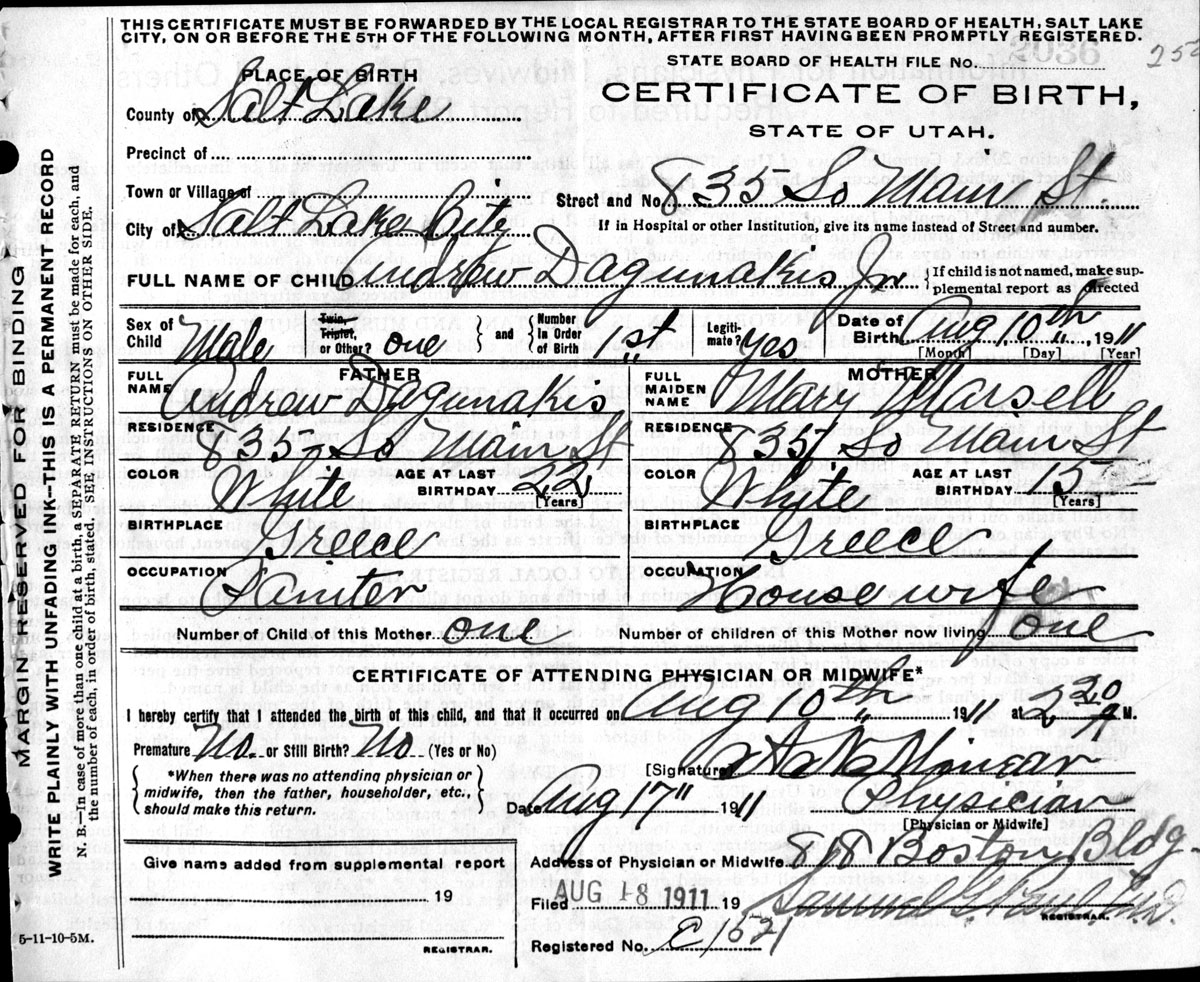 THIS CERTIFICATE MUST BE FORWARDED BY THE LOCAL REGISTRAR TO THE STATE BOARD OF HEALTH, SALT LAKE
CITY, ON OR BEFORE THE 5TH OF THE FOLLOWING MONTH, AFTER FIRST HAVING BEEN PROMPTLY REGISTERED.
STATE BOARD OF HEALTH FILE No. 2036
PLACE OF BIRTH
CERTIFICATE OF BIRTH,
County of Salt Lake
STATE OF UTAH.
Precinct of
Town or Village of
Street and No. 835 So Main St.
City of Salt Lake Cite
If in Hospital or other Institution, give its name instead of Street and number.
FULL NAME OF CHILD Andrew Dagunakis Jr
If child is not named, make supplemental report as directed
Sex of Child Male
Twin, Triplet, or Other? one
and Number In Order of Birth 1st
Legitimate? Yes
Date of Birth Aug 10th 1911
[Month] [Day] [Year]
FATHER
FULL NAME Andrew Dagunakis
RESIDENCE 835 So Main St
COLOR White
AGE AT LAST BIRTHDAY 22 [Years]
BIRTHPLACE Greece
OCCUPATION
MOTHER
FULL MAIDEN NAME Mary Marsell
RESIDENCE 835 So Main St
COLOR White
AGE AT LAST BIRTHDAY 15 [Years]
BIRTHPLACE Greece
OCCUPATION Housewife
Number of Child of this Mother one
Number of children of this Mother now living one
CERTIFICATE OF ATTENDING PHYSICIAN OR MIDWIFE*
I hereby certify that I attended the birth of this child, and that it occurred on Aug 10th 1911 at 2 30 M.
Premature No. or Still Birth? No (Yes or No)
*When there was no attending physician or
midwife, then the father, householder, etc.,
should make this return.
[Signature]
Date Aug 17" 1911 Physician
[Physician or Midwife]
Give name added from supplemental report
19
REGISTRAR.
Address of Physician or Midwife Boston Bldg.
Filed AUG 18 1911 19
REGISTRAR.
Registered No.
5-11-10-5M.
MARGIN RESERVED FOR BINDING
WRITE PLAINLY WITH UNFADING INK—THIS IS A PERMANENT RECORD
N. B.—In case of more than one child at a birth, a SEPARATE RETURN must be made for each, and
the number of each, in order of birth, stated. SEE INSTRUCTIONS ON OTHER SIDE.